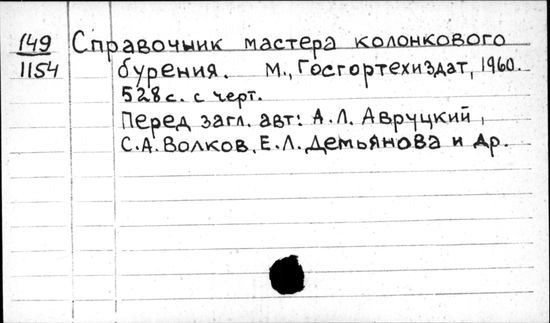 149 Справочник мастера колонкового
1154 бурения. М., Госгортехиздат, 1960.
528 с. с черт.
Перед загл. авт: А.Л. Авруцкий,
С.А. Волков, Е.Л. Демьянова и др.